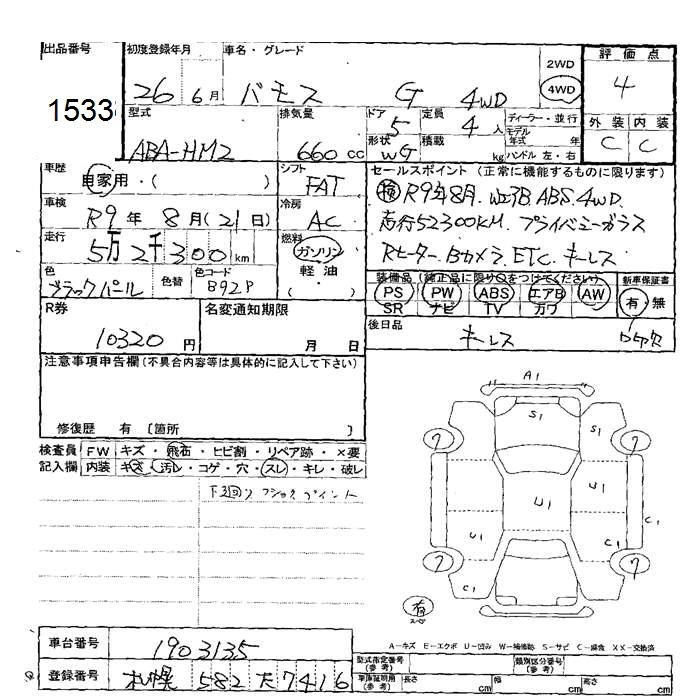 出品番号
1533
初度登録年月
26 6月
車名・グレード
バモス G 4WD
2WD
4WD
評価点
4
型式
ABA-HM2
排気量
660 cc
ドア
5
定員
4人
形状
WG
積載
kg
ディーラー・並行
モデル
年式 年
ハンドル 左・右
外装 内装
C C
車歴
自家用・( )
車検
R9年 8月(21日)
走行
5万2千300km
色
ブラックパール
色替
色コード
B92P
シフト
FAT
冷房
AC
燃料
ガソリン
軽油
( )
セールスポイント (正常に機能するものに限ります)
検R9年8月. WエアB. ABS. 4WD.
走行52300KM. プライバシーガラス
Rヒーター. Bカメラ. ETC. キーレス
装備品 (純正品に限り○をつけてください)
PS PW ABS エアB AW
SR ナビ TV カワ
新車保証書
有 無
後日品
キーレス
R券
10320円
名変通知期限
月 日
注意事項申告欄(不具合内容等は具体的に記入して下さい)
修復歴 有 [箇所 ]
検査員
記入欄
FW キズ・飛石・ヒビ割・リペア跡・×要
内装 キズ・汚レ・コゲ・穴・スレ・キレ・破レ
下回り
A1
S1
S1
7
7
U1
U1
U1
C1
C1
C1
7
7
有
スペア
A-キズ E-エクボ U-凹み W-補修跡 S-サビ C-腐食 XX-交換済
車台番号
1903135
登録番号
札幌 582 た 7416
型式指定番号
(参考)
類別区分番号
(参考)
車庫証明用
(参考)
長さ cm
幅 cm
高さ cm